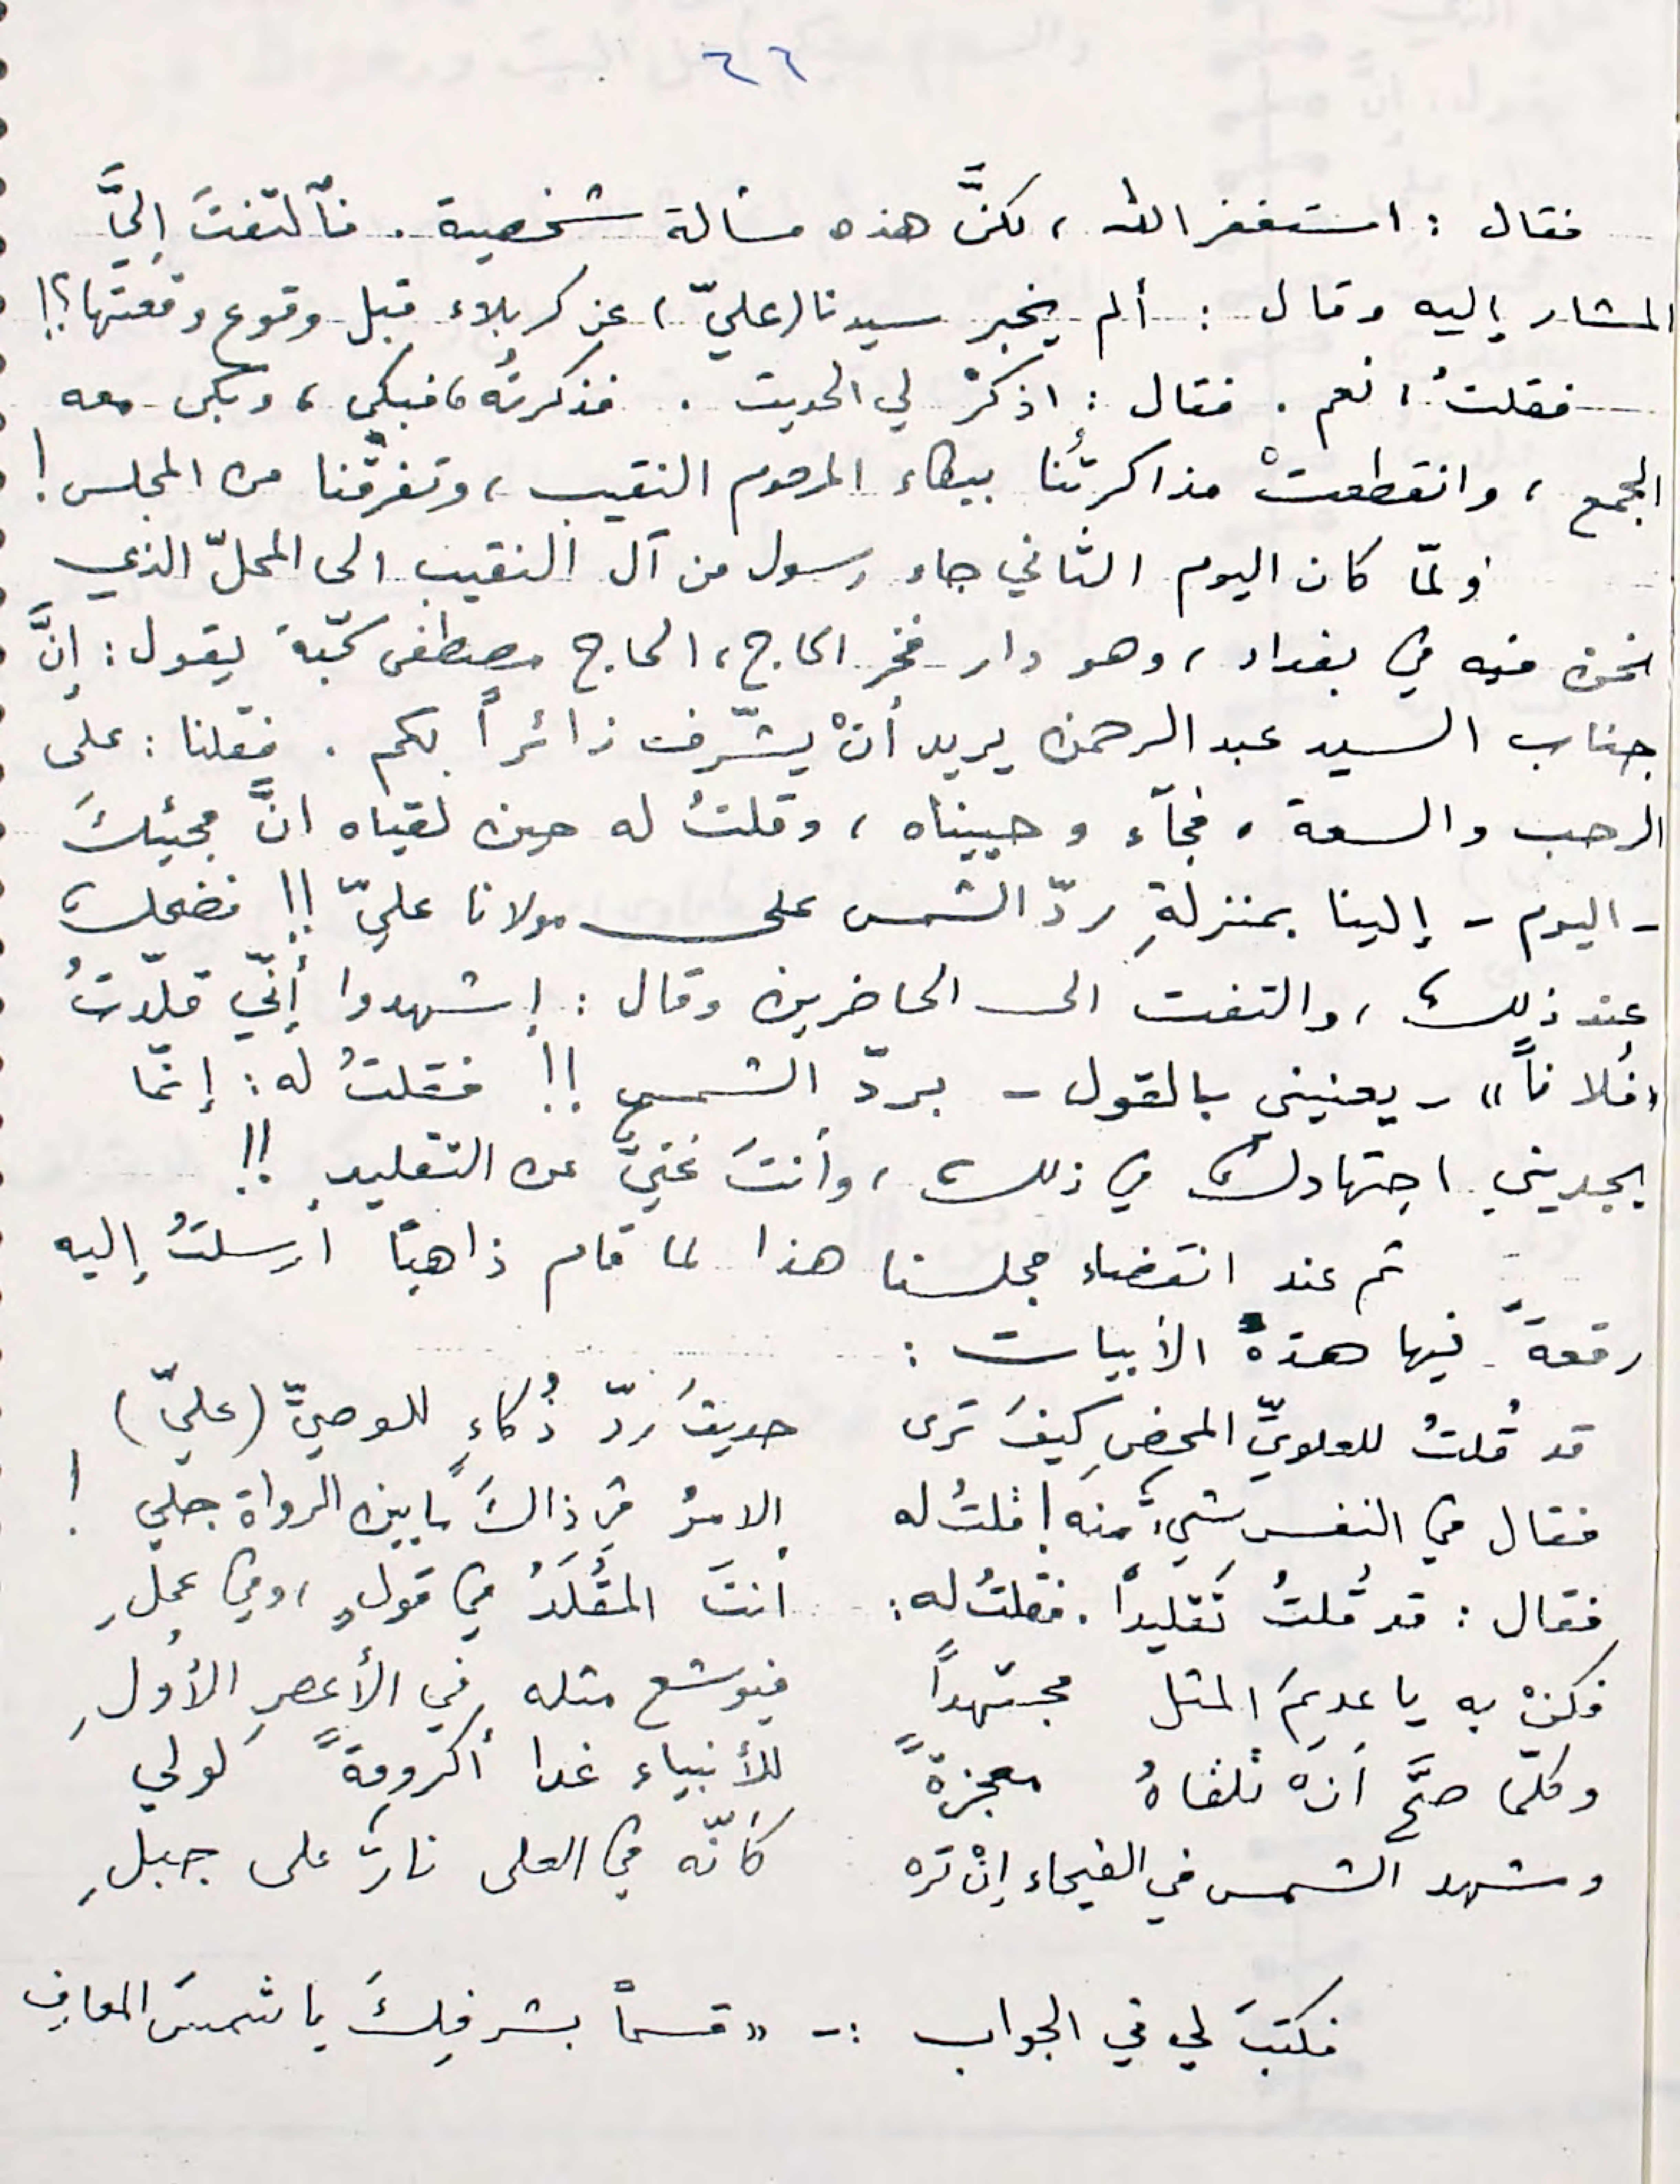 ٦٦
فقال : استغفر الله ، لكنَّ هذه مسألة شخصية . فألتفتَ إليَّ
المشار إليه وقال : ألم يخبر سيدنا (عليّ) عن كربلاء قبل وقوع وقعتها؟!
فقلتُ ، نعم . فقال : اذكرْ لي الحديث . فذكرتُه ، فبكى ، وبكى معه
الجمع ، وانقطعتْ مذاكرتُنا ببكاء المرحوم النقيب ، وتفرقْنا من المجلس !
ولمّا كان اليوم الثاني جاء رسول من آل النقيب الى المحلّ الذي
نحن فيه في بغداد ، وهو دار فخر الحاج ، الحاج مصطفى كبّة يقول : إنَّ
جناب السيد عبد الرحمن يريد أنْ يشّرف زائراً بكم . فقلنا : على
الرحب والسعة ، فجآء وحييناه ، وقلتُ له حين لقياه انَّ مجيئكَ
- اليوم - إلينا بمنزلةِ ردّ الشمس على مولانا عليّ !! فضحك
عند ذلك ، والتفت الى الحاضرين وقال : إشهدوا أنّي قلّدتُ
« فُلاناً » - يعنيني بالقول - بردّ الشمس !! فقلتُ له : إنّما
يجديني اجتهادك في ذلك ، وأنتَ غنيٌّ عن التقليد !!
ثم عند انقضاء مجلسنا هذا لما قام ذاهباً ارسلتُ إليه
رقعةً فيها هذه الأبيات :
قد قُلتُ للعلويِّ المحضِ كيفَ ترى حديثَ ردّ ذُكاءٍ للوصيِّ (عليّ)
فقال في النفس شيءٌ منه ! قلتُ له الامرُ في ذاكَ ما بين الرواة جلي !
فقال : قد قُلتُ تَقليداً . فقلتُ له : أنتَ المقُلَدُ في قولٍ ، وفي عملِ
فكنْ به يا عديمَ المثل مجتهداً فيوشع مثله في الأعصرِ الأولِ
وكلّما صحَّ انْ تلقاهُ معجزةً للأنبياء غدا أكرومةً لولي
وشهد الشمس في الفيحاء إنْ تره كأنّه في العلى نارٌ على جبلِ
فكتبَ لي في الجواب :- « قسماً بشرفِكَ يا شمسَ المعارف